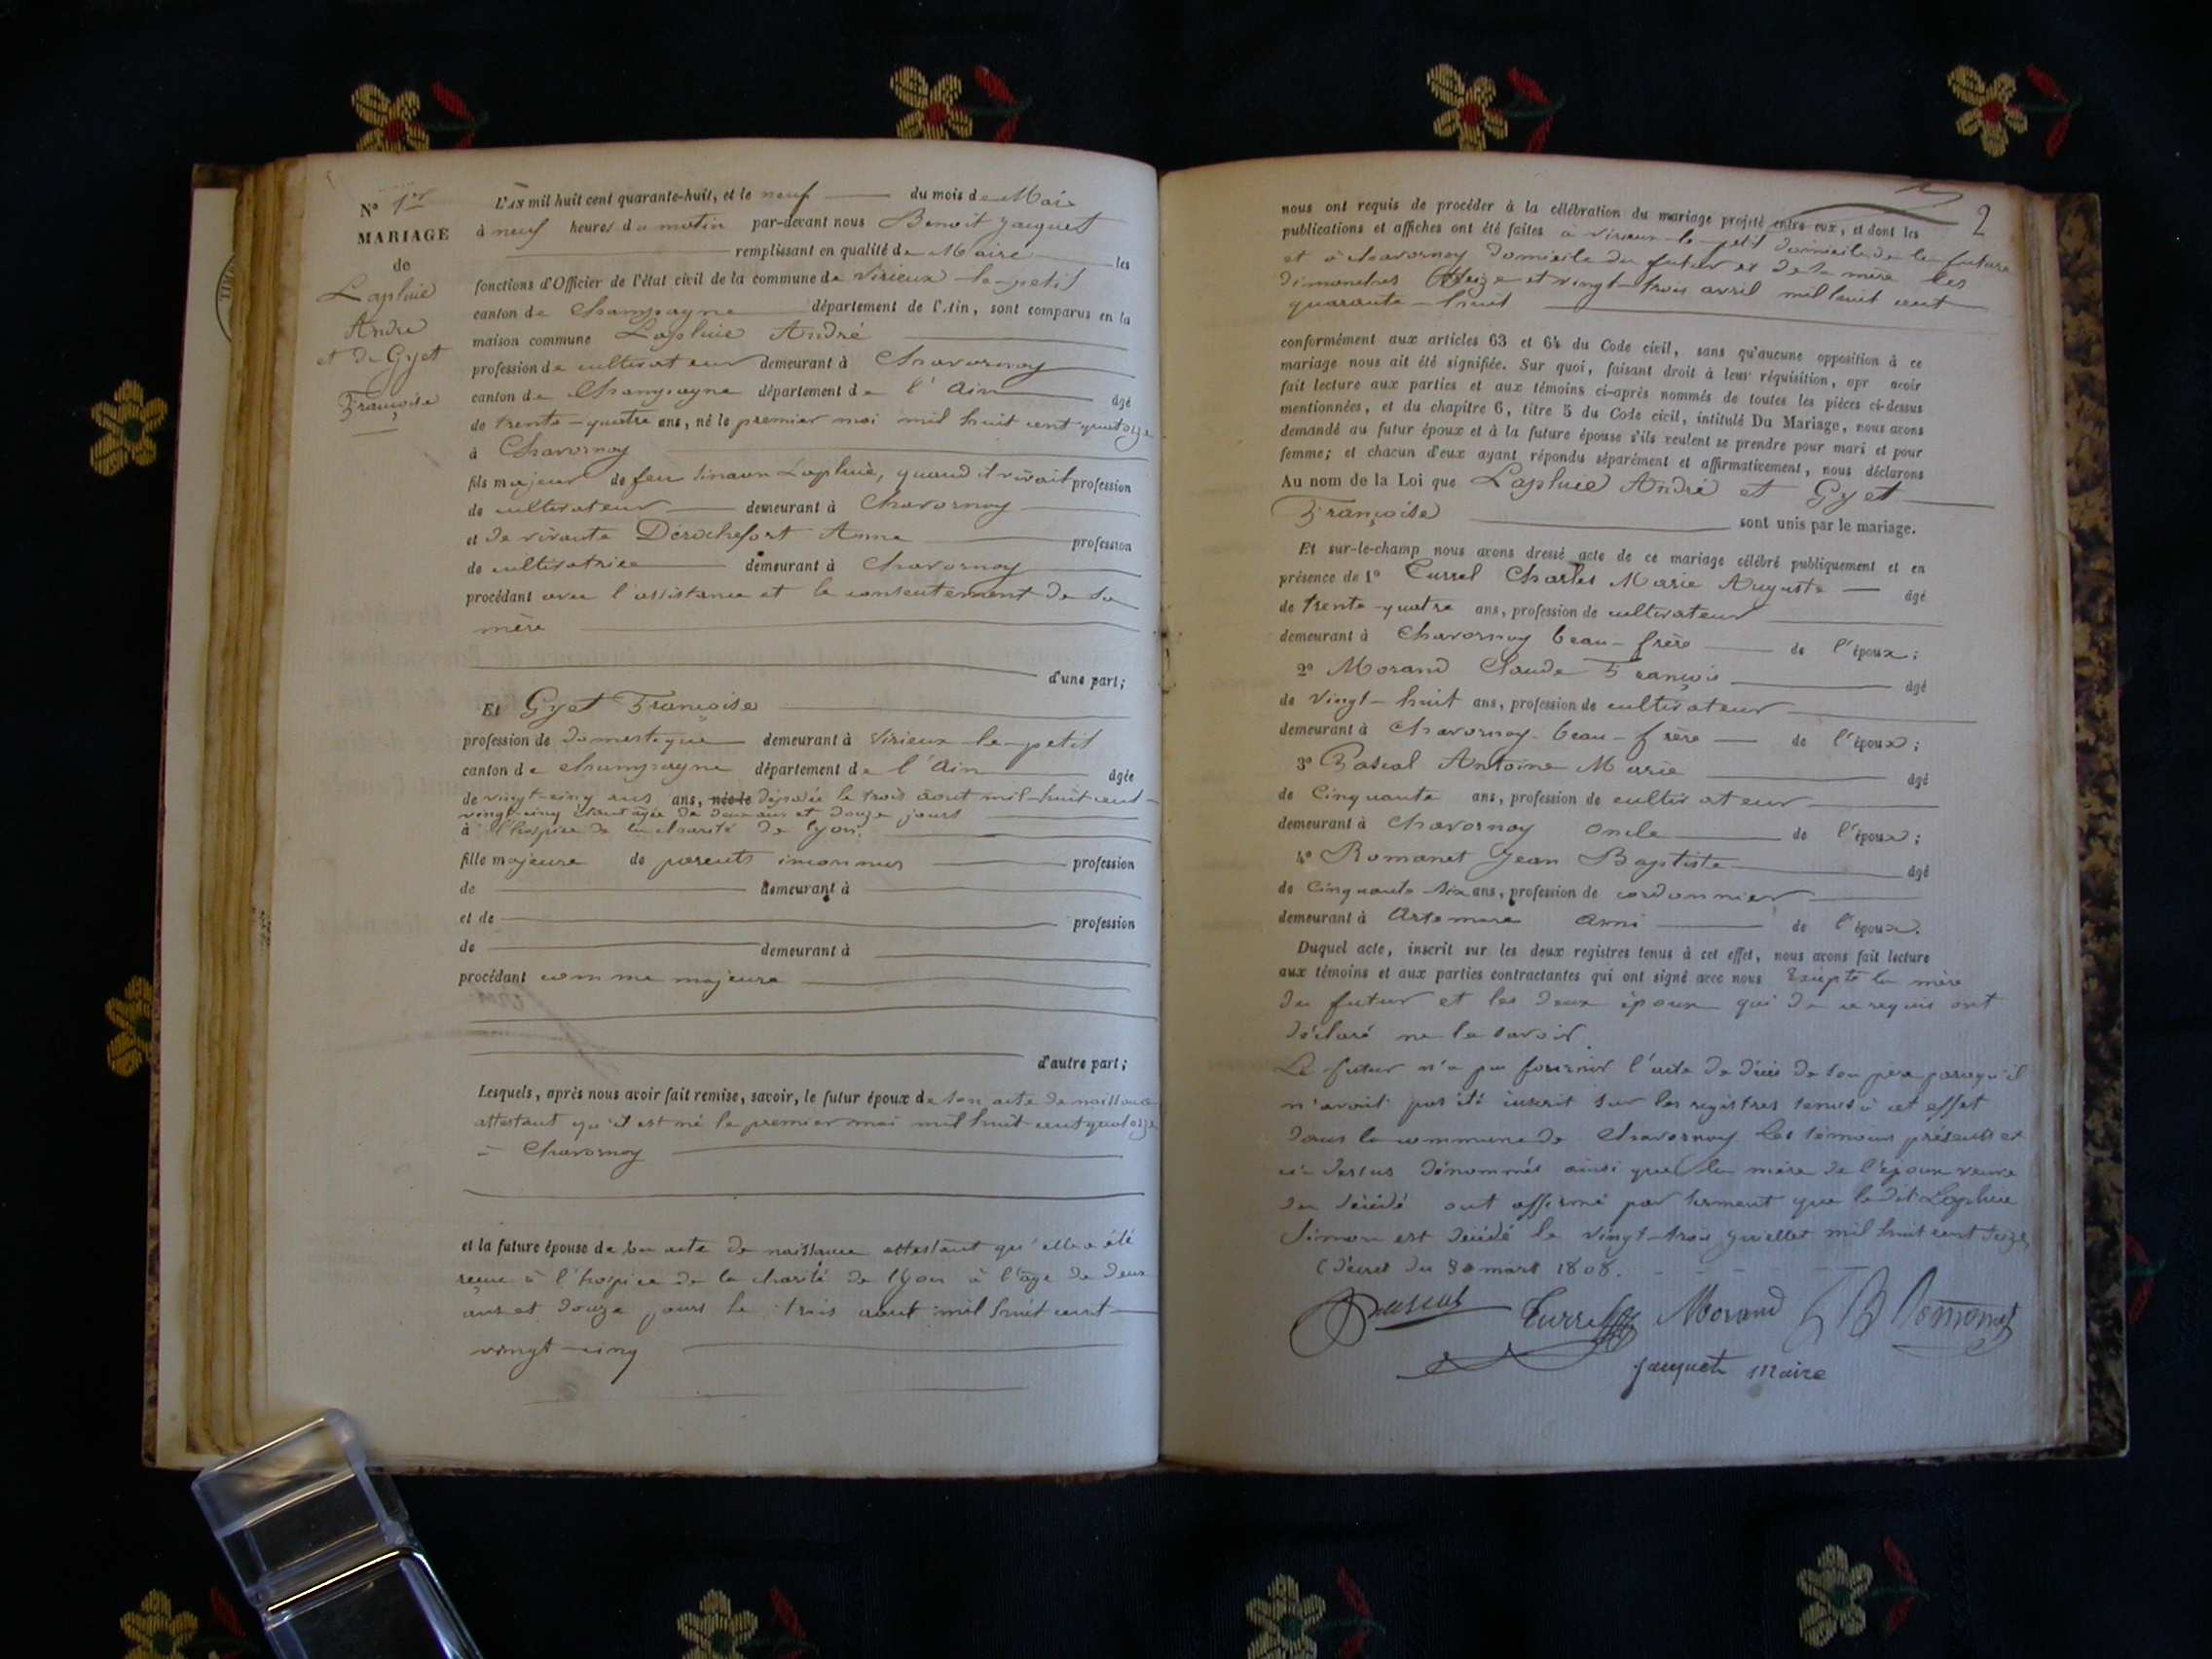 N° 1er
MARIAGE
de
Laphie
André
et de Gyet
Françoise
L'AN mil huit cent quarante-huit, et le neuf du mois de Mai
à neuf heures du matin par-devant nous Benoit Jacquet
remplissant en qualité de Maire les
fonctions d'Officier de l'état civil de la commune de Virieux-le-petit
canton de Champagne département de l'Ain, sont comparus en la
maison commune André
profession de cultivateur demeurant à Chavornay
canton de Champagne département de l'Ain âgé
de trente-quatre ans, né le premier mai mil huit cent quatorze
à Chavornay
fils majeur de feu quand il vivait profession
de cultivateur demeurant à Chavornay
et de vivante Dérochefort Anne profession
de cultivatrice demeurant à Chavornay
procédant avec l'assistance et le consentement de sa
mère
d'une part;
Et Gyet Françoise
profession de domestique demeurant à Virieux-le-petit
canton de Champagne département de l'Ain âgée
de vingt-cinq ans ans, née le déposée le trois août mil-huit-cent-
vingt-cinq étant âgée de deux ans et douze jours
à l'hospice de la charité de Lyon
fille majeure de parents inconnus profession
de demeurant à
et de profession
de demeurant à
procédant comme majeure
d'autre part;
Lesquels, après nous avoir fait remise, savoir, le futur époux de son acte de naissance
attestant qu'il est né le premier mai mil huit cent quatorze
à Chavornay
et la future épouse de son acte de naissance attestant qu'elle a été
reçue à l'hospice de la charité de Lyon à l'âge de deux
ans et douze jours le trois août mil huit cent
vingt-cinq
2
nous ont requis de procéder à la célébration du mariage projeté entre eux, et dont les
publications et affiches ont été faites à Virieux-le-petit domicile de la future
et à Chavornay domicile du futur et de sa mère les
dimanches seize et vingt-trois avril mil huit cent
quarante-huit
conformément aux articles 63 et 64 du Code civil, sans qu'aucune opposition à ce
mariage nous ait été signifiée. Sur quoi, faisant droit à leur réquisition, apr avoir
fait lecture aux parties et aux témoins ci-après nommés de toutes les pièces ci-dessus
mentionnées, et du chapitre 6, titre 5 du Code civil, intitulé Du Mariage, nous avons
demandé au futur époux et à la future épouse s'ils veulent se prendre pour mari et pour
femme; et chacun d'eux ayant répondu séparément et affirmativement, nous déclarons
Au nom de la Loi que André et Gyet
Françoise sont unis par le mariage.
Et sur-le-champ nous avons dressé acte de ce mariage célébré publiquement et en
présence de 1° Turrel Charles Marie Auguste âgé
de trente-quatre ans, profession de cultivateur
demeurant à Chavornay beau-frère de l'époux;
2° Morand Claude François âgé
de vingt-huit ans, profession de cultivateur
demeurant à Chavornay beau-frère de l'époux;
3° Pascal Antoine Marie âgé
de Cinquante ans, profession de cultivateur
demeurant à Chavornay oncle de l'époux;
4° Romanet Jean Baptiste âgé
de Cinquante six ans, profession de cordonnier
demeurant à Artemare ami de l'époux.
Duquel acte, inscrit sur les deux registres tenus à cet effet, nous avons fait lecture
aux témoins et aux parties contractantes qui ont signé avec nous Excepté la mère
du futur et les deux époux qui de ce requis ont
déclaré ne le savoir.
Le futur n'a pu fournir l'acte de décès de son père parcequ'il
n'avait pas été inscrit sur les registres tenus à cet effet
dans la commune de Chavornay les témoins présents et
ci-dessus dénommés ainsi que la mère de l'époux veuve
du décédé ont affirmé par serment que le dit
Simon est décédé le vingt-trois juillet mil huit cent seize
(décret du 30 mars 1808.
Pascal Turrel Morand JB Romanet
Jacquet Maire